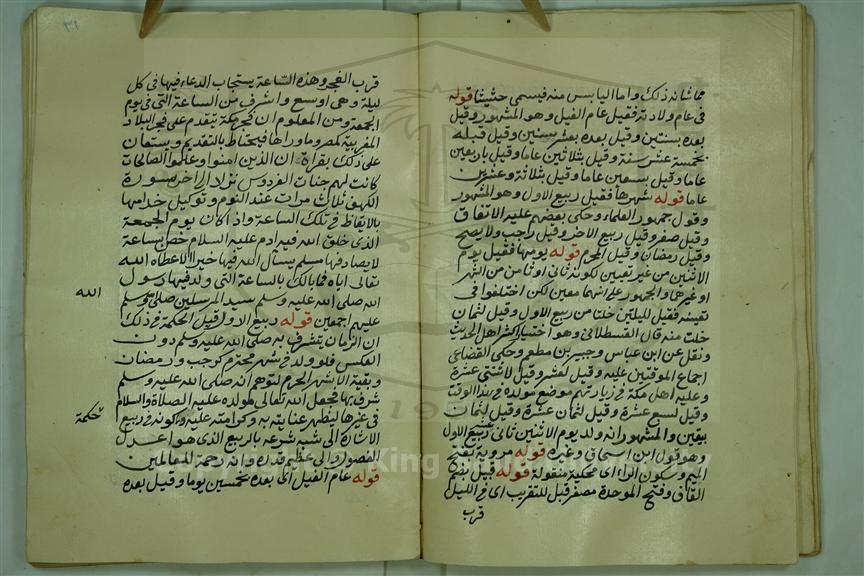 مما شانه ذلك واما اليابس منه فيسمى حشيشا قوله
فى عام ولادته فقيل عام الفيل وهو المشهور وقيل
بعده بسنتين وقيل بعده بعشر سنين وقيل قبله
بخمسة عشر سنة وقيل بثلاثين عاما وقيل باربعين
عاما وقيل بسبعين عاما وقيل بثلاثة وعشرين
عاما قوله شهرها فقيل ربيع الاول وهو المشهور
وقول جمهور العلماء وحكى بعضهم عليه الاتفاق
وقيل صفر وقيل ربيع الاخر وقيل رجب ولا يصح
وقيل رمضان وقيل المحرم قوله يومها فقيل يوم
الاثنين من غير تعيين لكونه ثانى او ثامن الشهر
او غيرها والجمهور على انهما معين لكن اختلفوا فى
تعيينه فقيل لليلتين خلتا من ربيع الاول وقيل لثمان
خلت منه قال القسطلانى وهو اختيار اكثر اهل الحديث
ونقل عن ابن عباس وجبير بن مطعم وحكى القضاعى
اجماع الموقتين عليه وقيل لعشر وقيل لاثنتى عشرة
وعليه اهل مكة فى زيارتهم موضع مولده فى هذا الوقت
وقيل لسبع عشرة وقيل لثمان عشرة وقيل لثمان
بقين والمشهور انه ولد يوم الاثنين ثانى عشر ربيع الاول
وهو قول ابن اسحاق وغيره قوله مروية بفتح
الميم وسكون الراء اى محكية منقولة قوله قبيل بضم
القاف وفتح الموحدة مصغر قبل للتقريب اى فى الليل
قرب
٣١
قرب الفجر وهذه الساعة يستجاب الدعاء فيها فى كل
ليلة وهى اوسع واشرف من الساعة التى فى يوم
الجمعة ومن المعلوم ان فجر مكة يتقدم على فجر البلاد
المغربية كمصر وما وراها فيحتاط بالتقديم ويستعان
على ذلك بقراءة ان الذين امنوا وعملوا الصالحات
كانت لهم جنات الفردوس نزلا الى اخر سورة
الكهف ثلاث مرات عند النوم وتوكيل خدامها
بالايقاظ فى تلك الساعة واذا كان يوم الجمعة
الذى خلق الله فيه ادم عليه السلام خص بساعة
لا يصادفها مسلم يسأل الله فيها خيرا الا اعطاه الله
تعالى اياه فما بالك بالساعة التى ولد فيها رسول
الله
الله صلى الله عليه وسلم سيد المرسلين صلى وسلم
عليهم اجمعين قوله ربيع الاول قيل الحكمة فى ذلك
ان الزمان يتشرف به صلى الله عليه وسلم دون
العكس فلو ولد فى شهر محترم كرجب ورمضان
وبقية الاشهر الحرم لتوهم انه صلى الله عليه وسلم
شرف بها فجعل الله تعالى مولده عليه الصلاة والسلام
حكمة
فى غيرها ليظهر عنايته به وكرامته عليه وكونه فى ربيع
الاشارة الى شبه شرعه بالربيع الذى هو اعدل
الفصول والى عظيم قدره وانه رحمة للعالمين
قوله عام الفيل اى بعده بخمسين يوما وقيل بعده